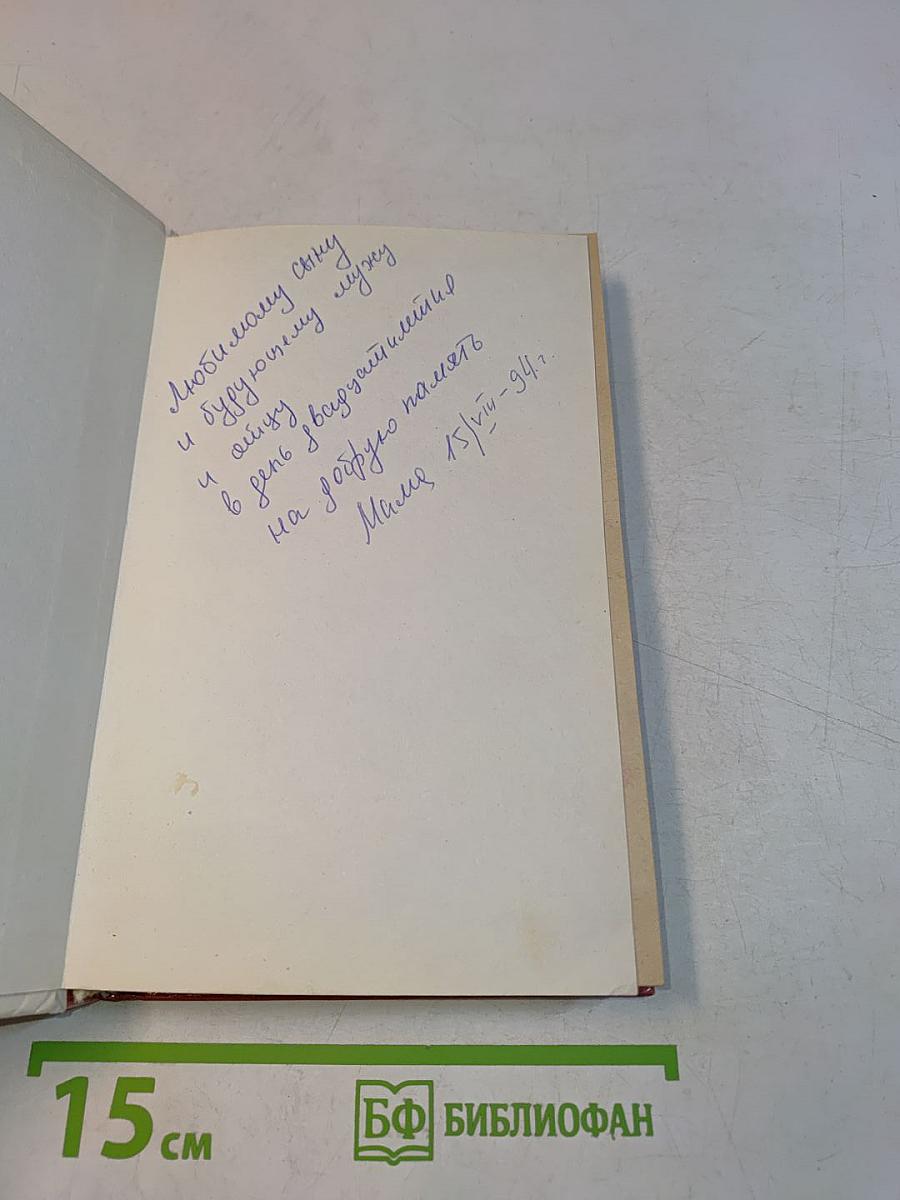 Любимому сыну
и будующему мужу
и отцу
в день двадцатилетия
на добрую память
Мама 15/VIII-94 г.
15 см
БФ БИБЛИОФАН